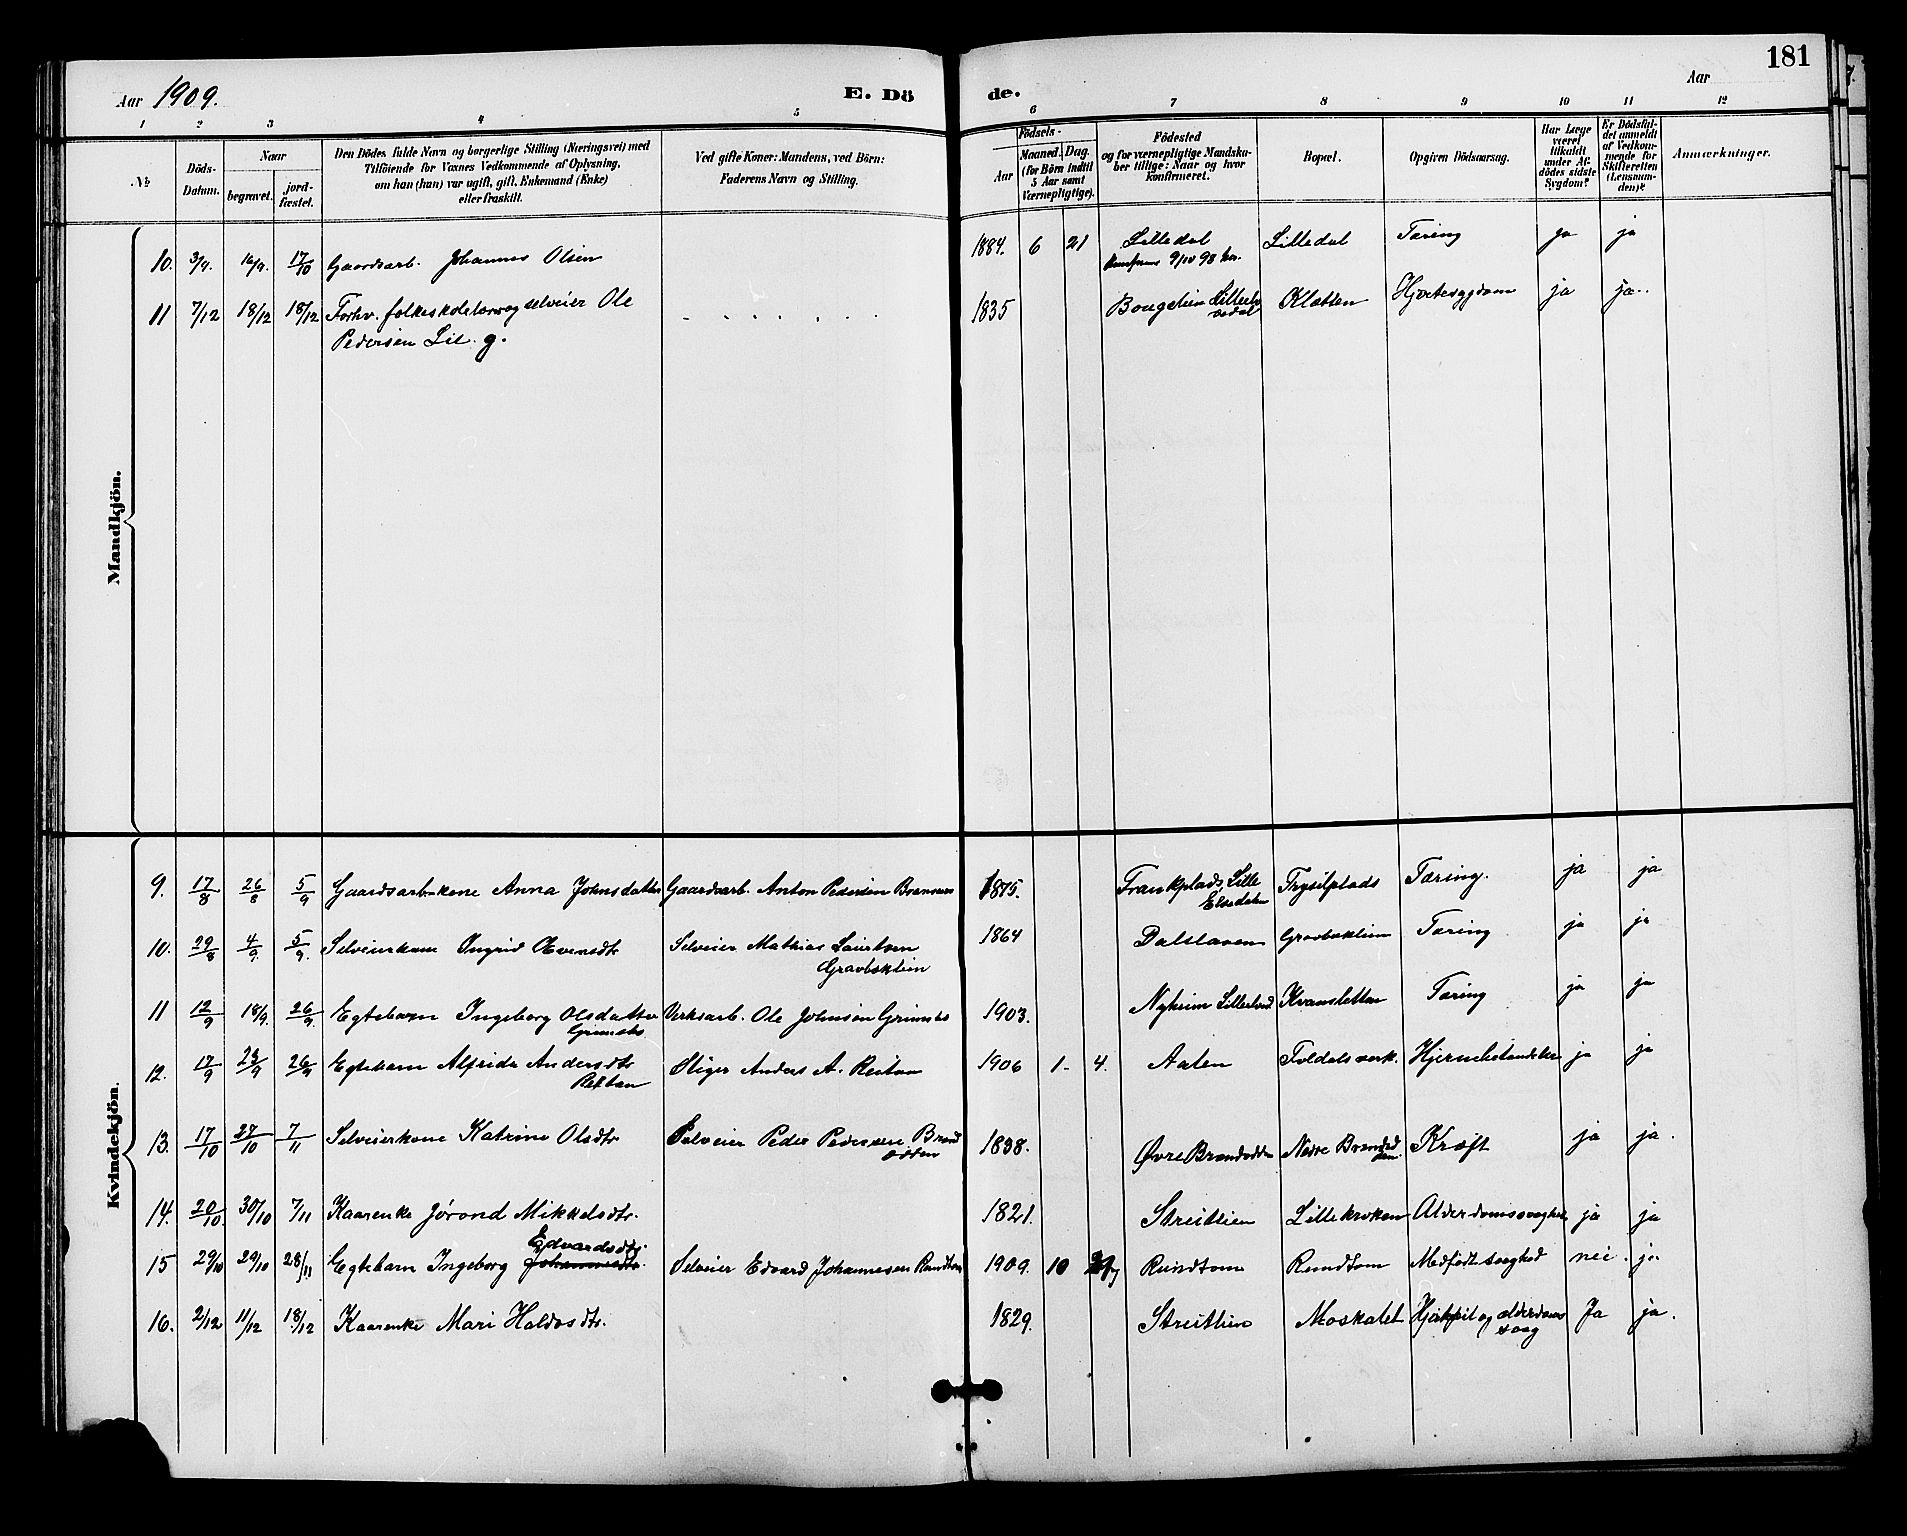 Aar 1909.
E. Dö de.
Aar
181
1 2 3 4 5 6 7 8 9 10 11 12
№
Döds-Datum.
Naar
begravet.
jord-fæstet.
Den Dödes fulde Navn og borgerlige Stilling (Næringsvei) med
Tilföiende for Voxnes Vedkommende af Oplysning,
om han (hun) var ugift, gift, Enkemand (Enke)
eller fraskilt.
Ved gifte Koner: Mandens, ved Börn:
Faderens Navn og Stilling.
Födsels-
Aar
Maaned. Dag.
(for Börn indtil
5 Aar samt
Værnepligtige).
Födested
og for værnepligtige Mandska-
ber tillige: Naar og hvor
konfirmeret.
Bopæl.
Opgiven Dödsaarsag.
Har Læge
været
tilkaldt
under Af-
dödes sidste
Sygdom?
Er Dödsfal-
det anmeldt
af Vedkom-
mende for
Skifteretten
(Lensman-
den)?
Anmærkninger.
Mandkjön.
10. 3/9. 16/9. 17/10 Gaardsarb. Johannes Olsen 1884. 6 21 Lilledal Lilledal Tæring ja ja
9/10 98
11 7/12 18/12 18/12 Forhv. folkeskolelærer og selveier Ole 1835 Klætten Hjertesygdom ja ja.
Pedersen Lie. g.
Kvindekjön.
9. 17/8 26/8 5/9 Gaardsarb.kone Anna Johnsdatter Gaardsarb. Anton Pedersen 1875. Frankplads Lille Trysilplads Tæring. ja ja
Elvedalen
10. 29/8 4/9. 5/9. Selveierkone Ingrid Evensdtr Selveier Mathias 1864 Dalslaaen Gravbæklien Tæring ja ja
Gravbæklien
11 12/9 18/9. 26/9. Egtebarn Ingeborg Olsdatter Verksarb. Ole Johnsen Grimsbo 1903. Nyheim Kvansletten Tæring ja ja
Grimsbo
12. 17/9 23/9 26/9 Egtebarn Alfride Andersdtr Stiger Anders A. Reitan 1906 1- 4. Aalen Foldalsverk. Hjernebetændelse ja ja
Reitan
13. 17/10 27/10 7/11 Selveierkone Katrine Olsdtr Selveier Peder Pedersen Brand 1838. Øvre Brandodden Nedre Brandod Kræft ja ja.
odden den.
14. 20/10. 30/10 7/11 Kaarenke Jørond Mikkelsdtr. 1821. Streitlien Lillekroken Alderdomssvaghet ja ja
Edvardsdtr
15 29/10 29/10 28/11 Egtebarn Ingeborg Johannesdtr. Selveier Edvard Johannesen Rundtom 1909. 10 29 Rundtom Rundtom Medfødt svaghed nei. ja.
16. 2/12 11/12 18/12 Kaarenke Mari Haldosdtr. 1829. Streitlien Moskalet Hjertefeil og alderdoms Ja ja.
svag